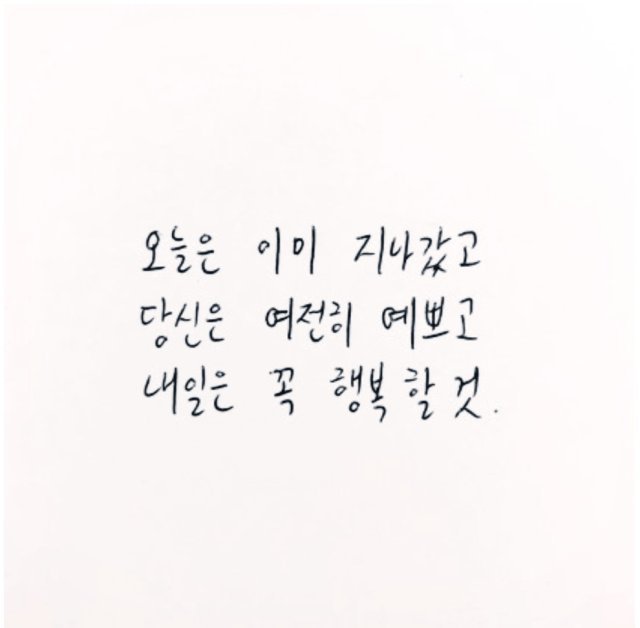 오늘은 이미 지나갔고
당신은 여전히 예쁘고
내일은 꼭 행복할 것.